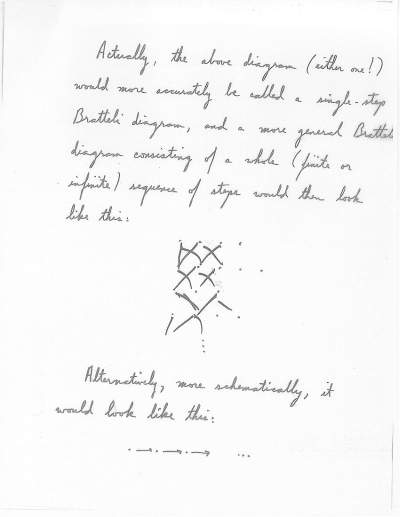 Actually, the above diagram (either one!)
would more accurately be called a single-step
Bratteli diagram, and a more general Bratteli
diagram consisting of a whole (finite or
infinite) sequence of steps would then look
like this:
Alternatively, more schematically, it
would look like this: